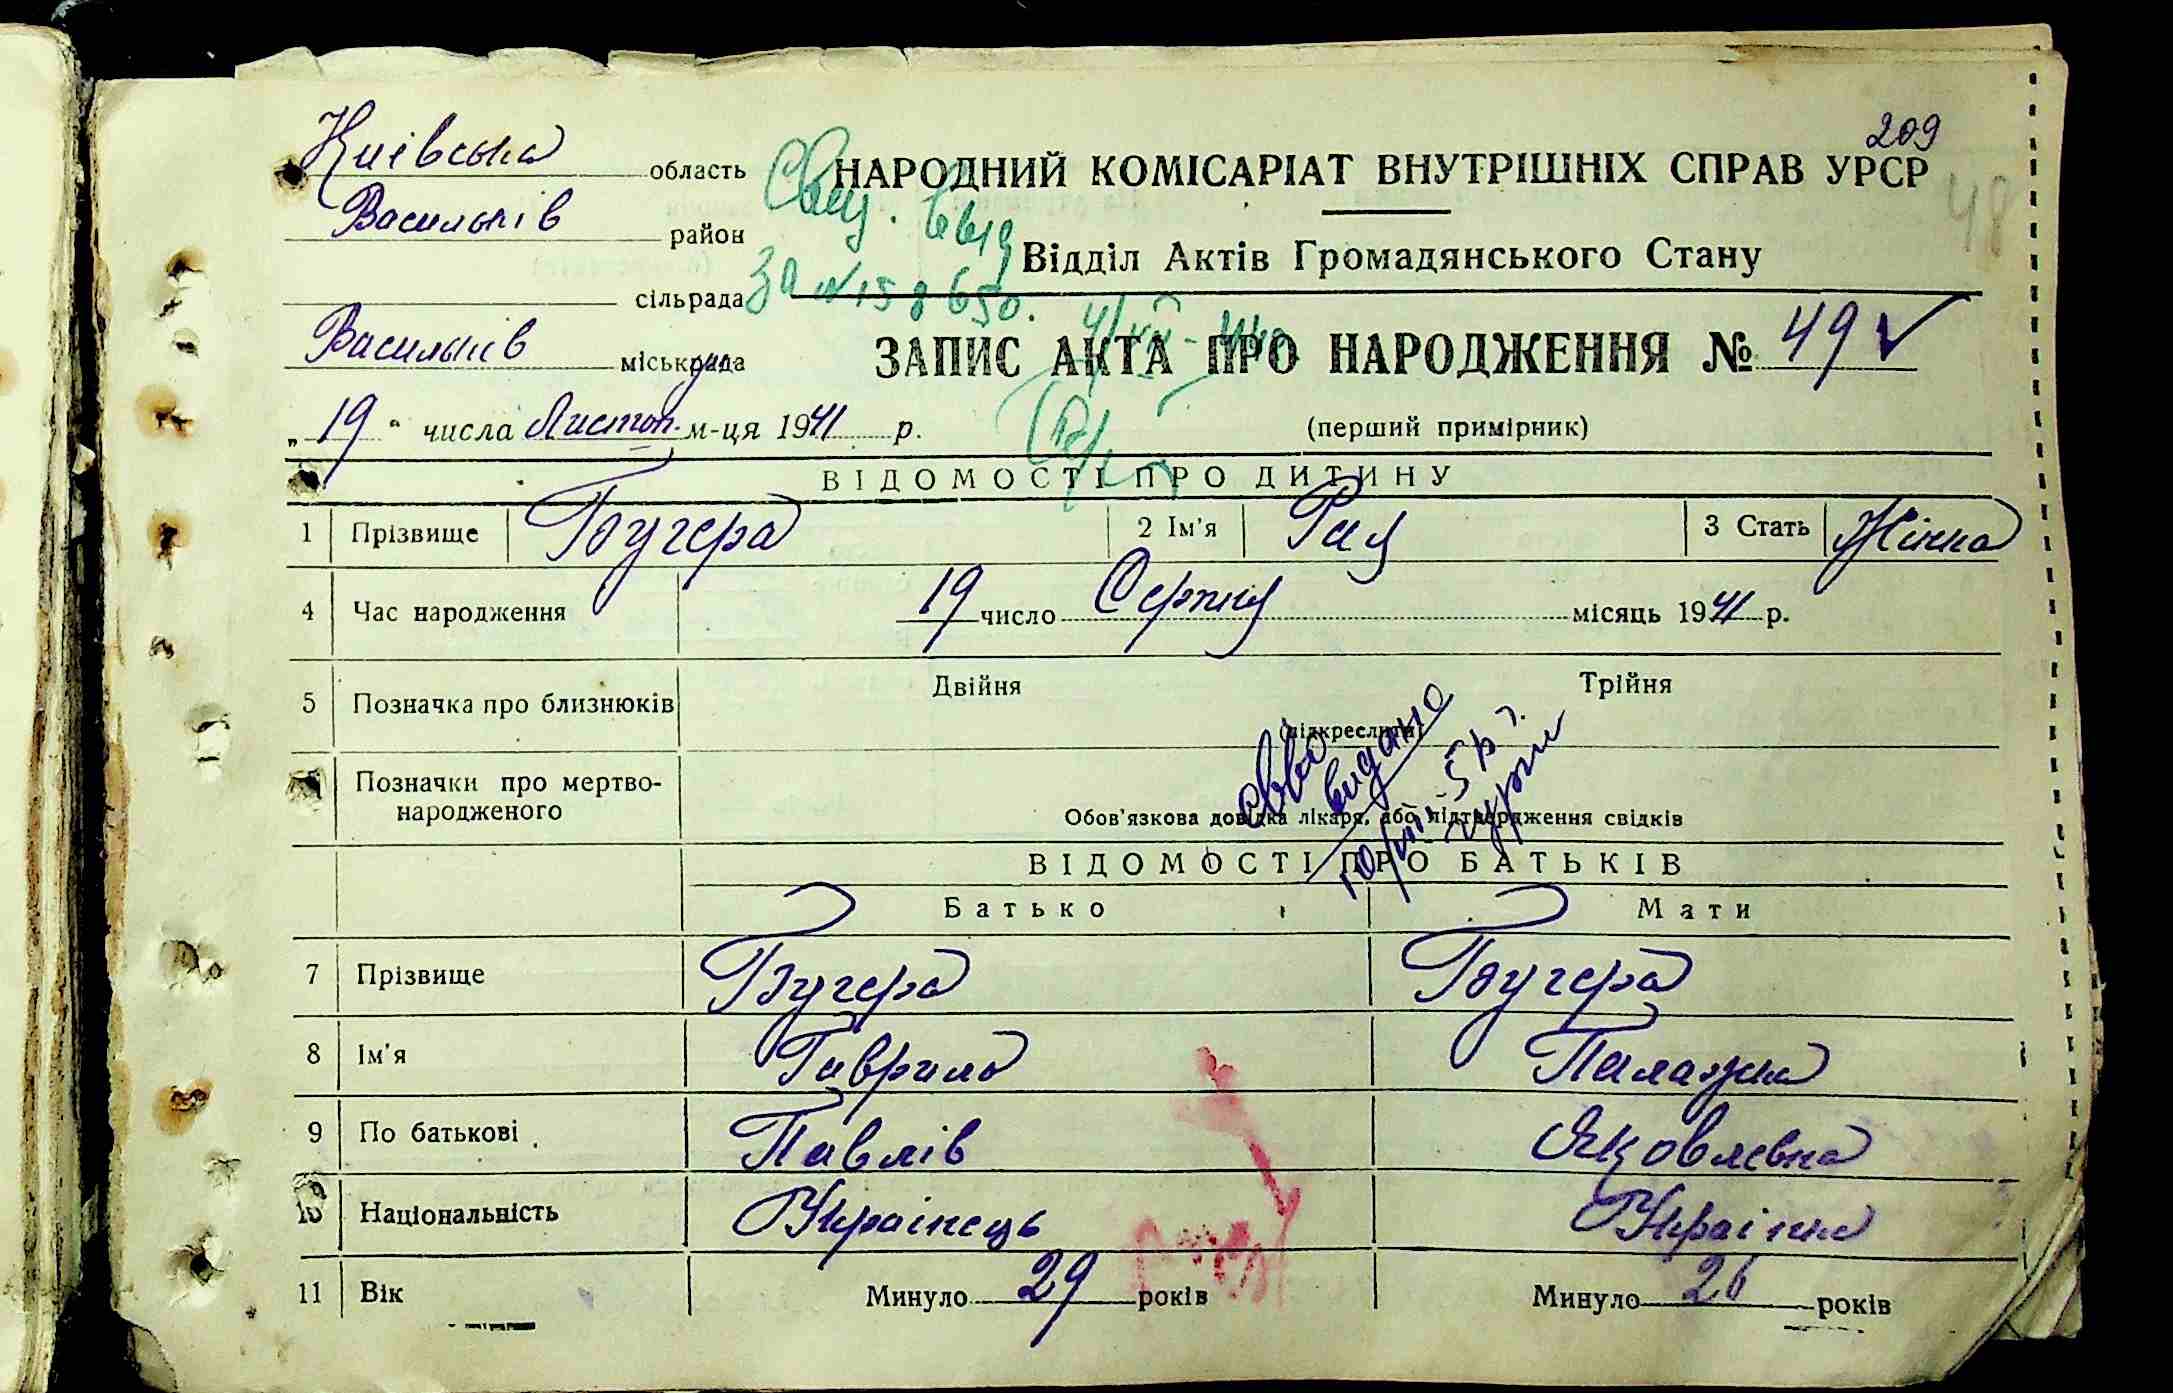 209
Київська область
НАРОДНИЙ КОМІСАРІАТ ВНУТРІШНІХ СПРАВ УРСР
48
Васильків район
Відділ Актів Громадянського Стану
сільрада
за №158650.
Васильків міськрада
ЗАПИС АКТА ПРО НАРОДЖЕННЯ № 49
„19“ числа Листоп. м-ця 1941 р.
(перший примірник)
ВІДОМОСТІ ПРО ДИТИНУ
1 Прізвище Бугера 2 Ім'я Рая 3 Стать Жінка
4 Час народження 19 число Серпня місяць 1941 р.
5 Позначка про близнюків Двійня Трійня
(підкреслити)
видано
Позначки про мертво-
народженого
Обов'язкова довідка лікаря, або підтвердження свідків
ВІДОМОСТІ ПРО БАТЬКІВ
Батько Мати
7 Прізвище Бугера Бугера
8 Ім'я Гаврило Палажка
9 По батькові Павлів Яковлевна
10 Національність Українець Українка
11 Вік Минуло 29 років Минуло 26 років